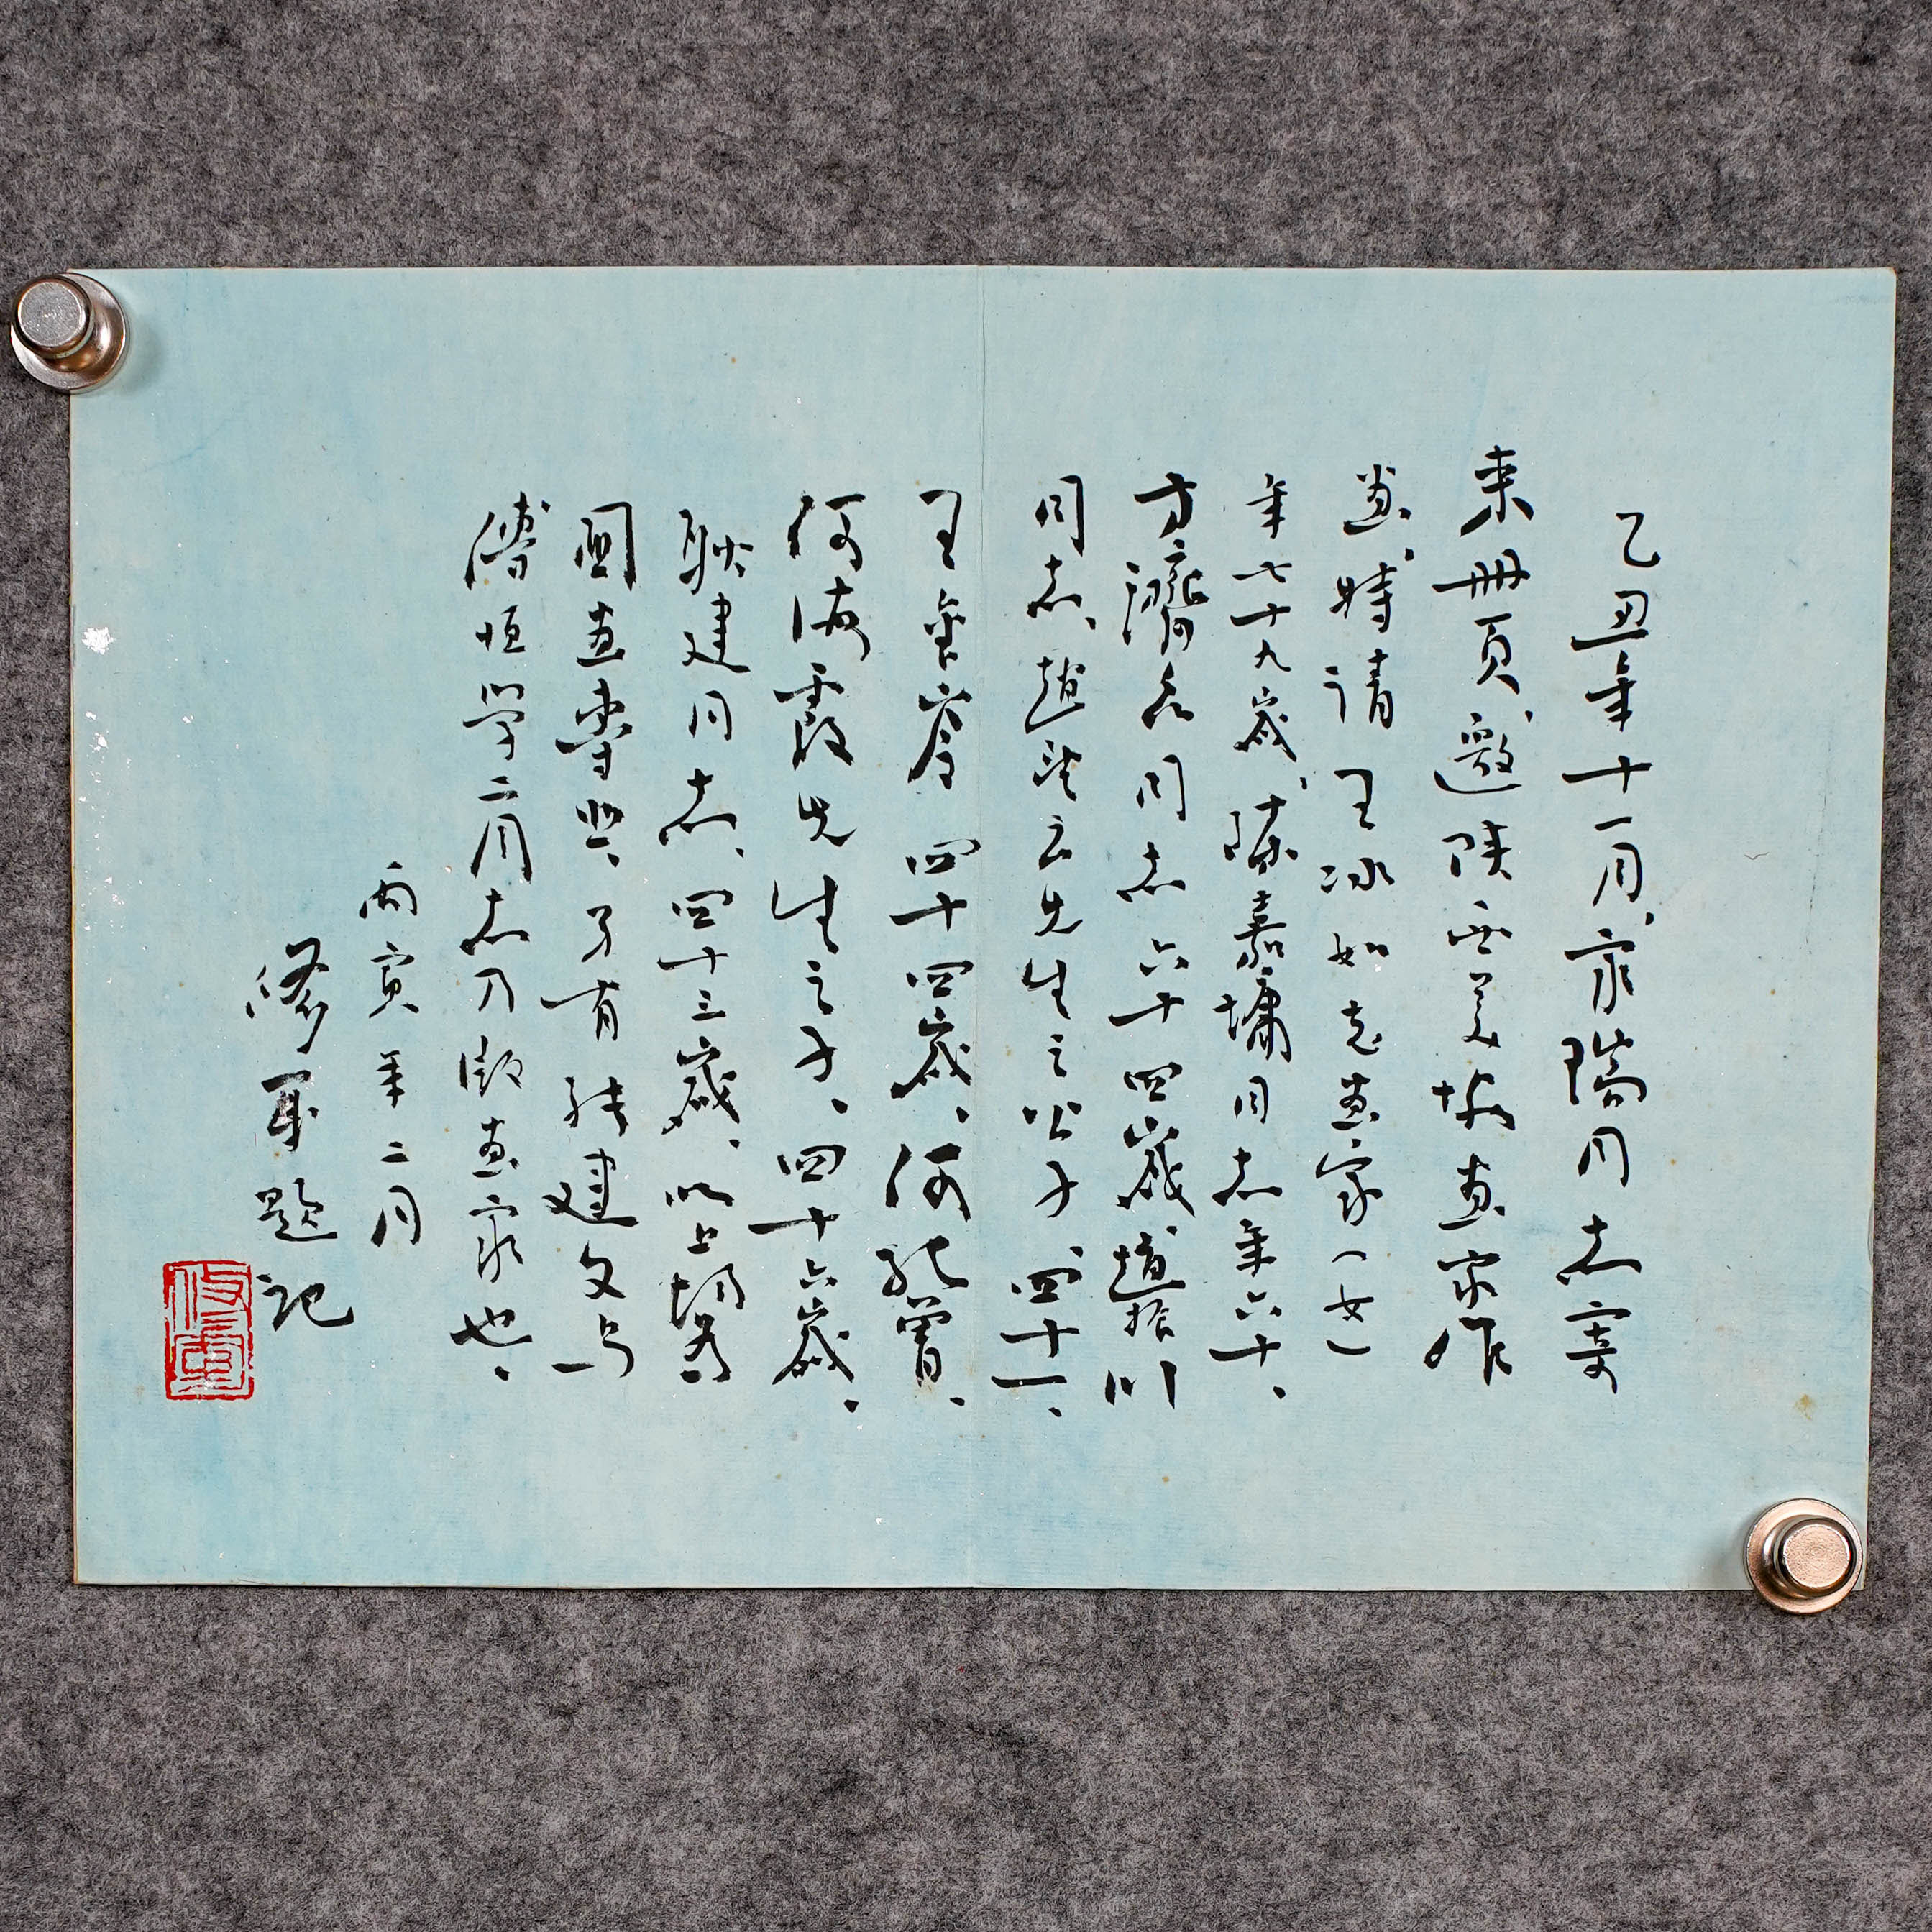 乙丑年十一月，宗瑞同志寄
来册页，邀陕西美协画家作
画，特请王冰如老画家（女）
年七十九岁，陈嘉墉同志年六十、
方濟众同志六十四岁，趙拾川
同志，趙望云先生之公子，四十一、
王金岭四十四岁、何纪曾、
何海霞先生之子、四十六岁、
耿建同志、四十三岁、以上均为
国画专业、另有张建文与
傅恒学二同志乃版画家也、
丙寅年二月
修军题记
修军